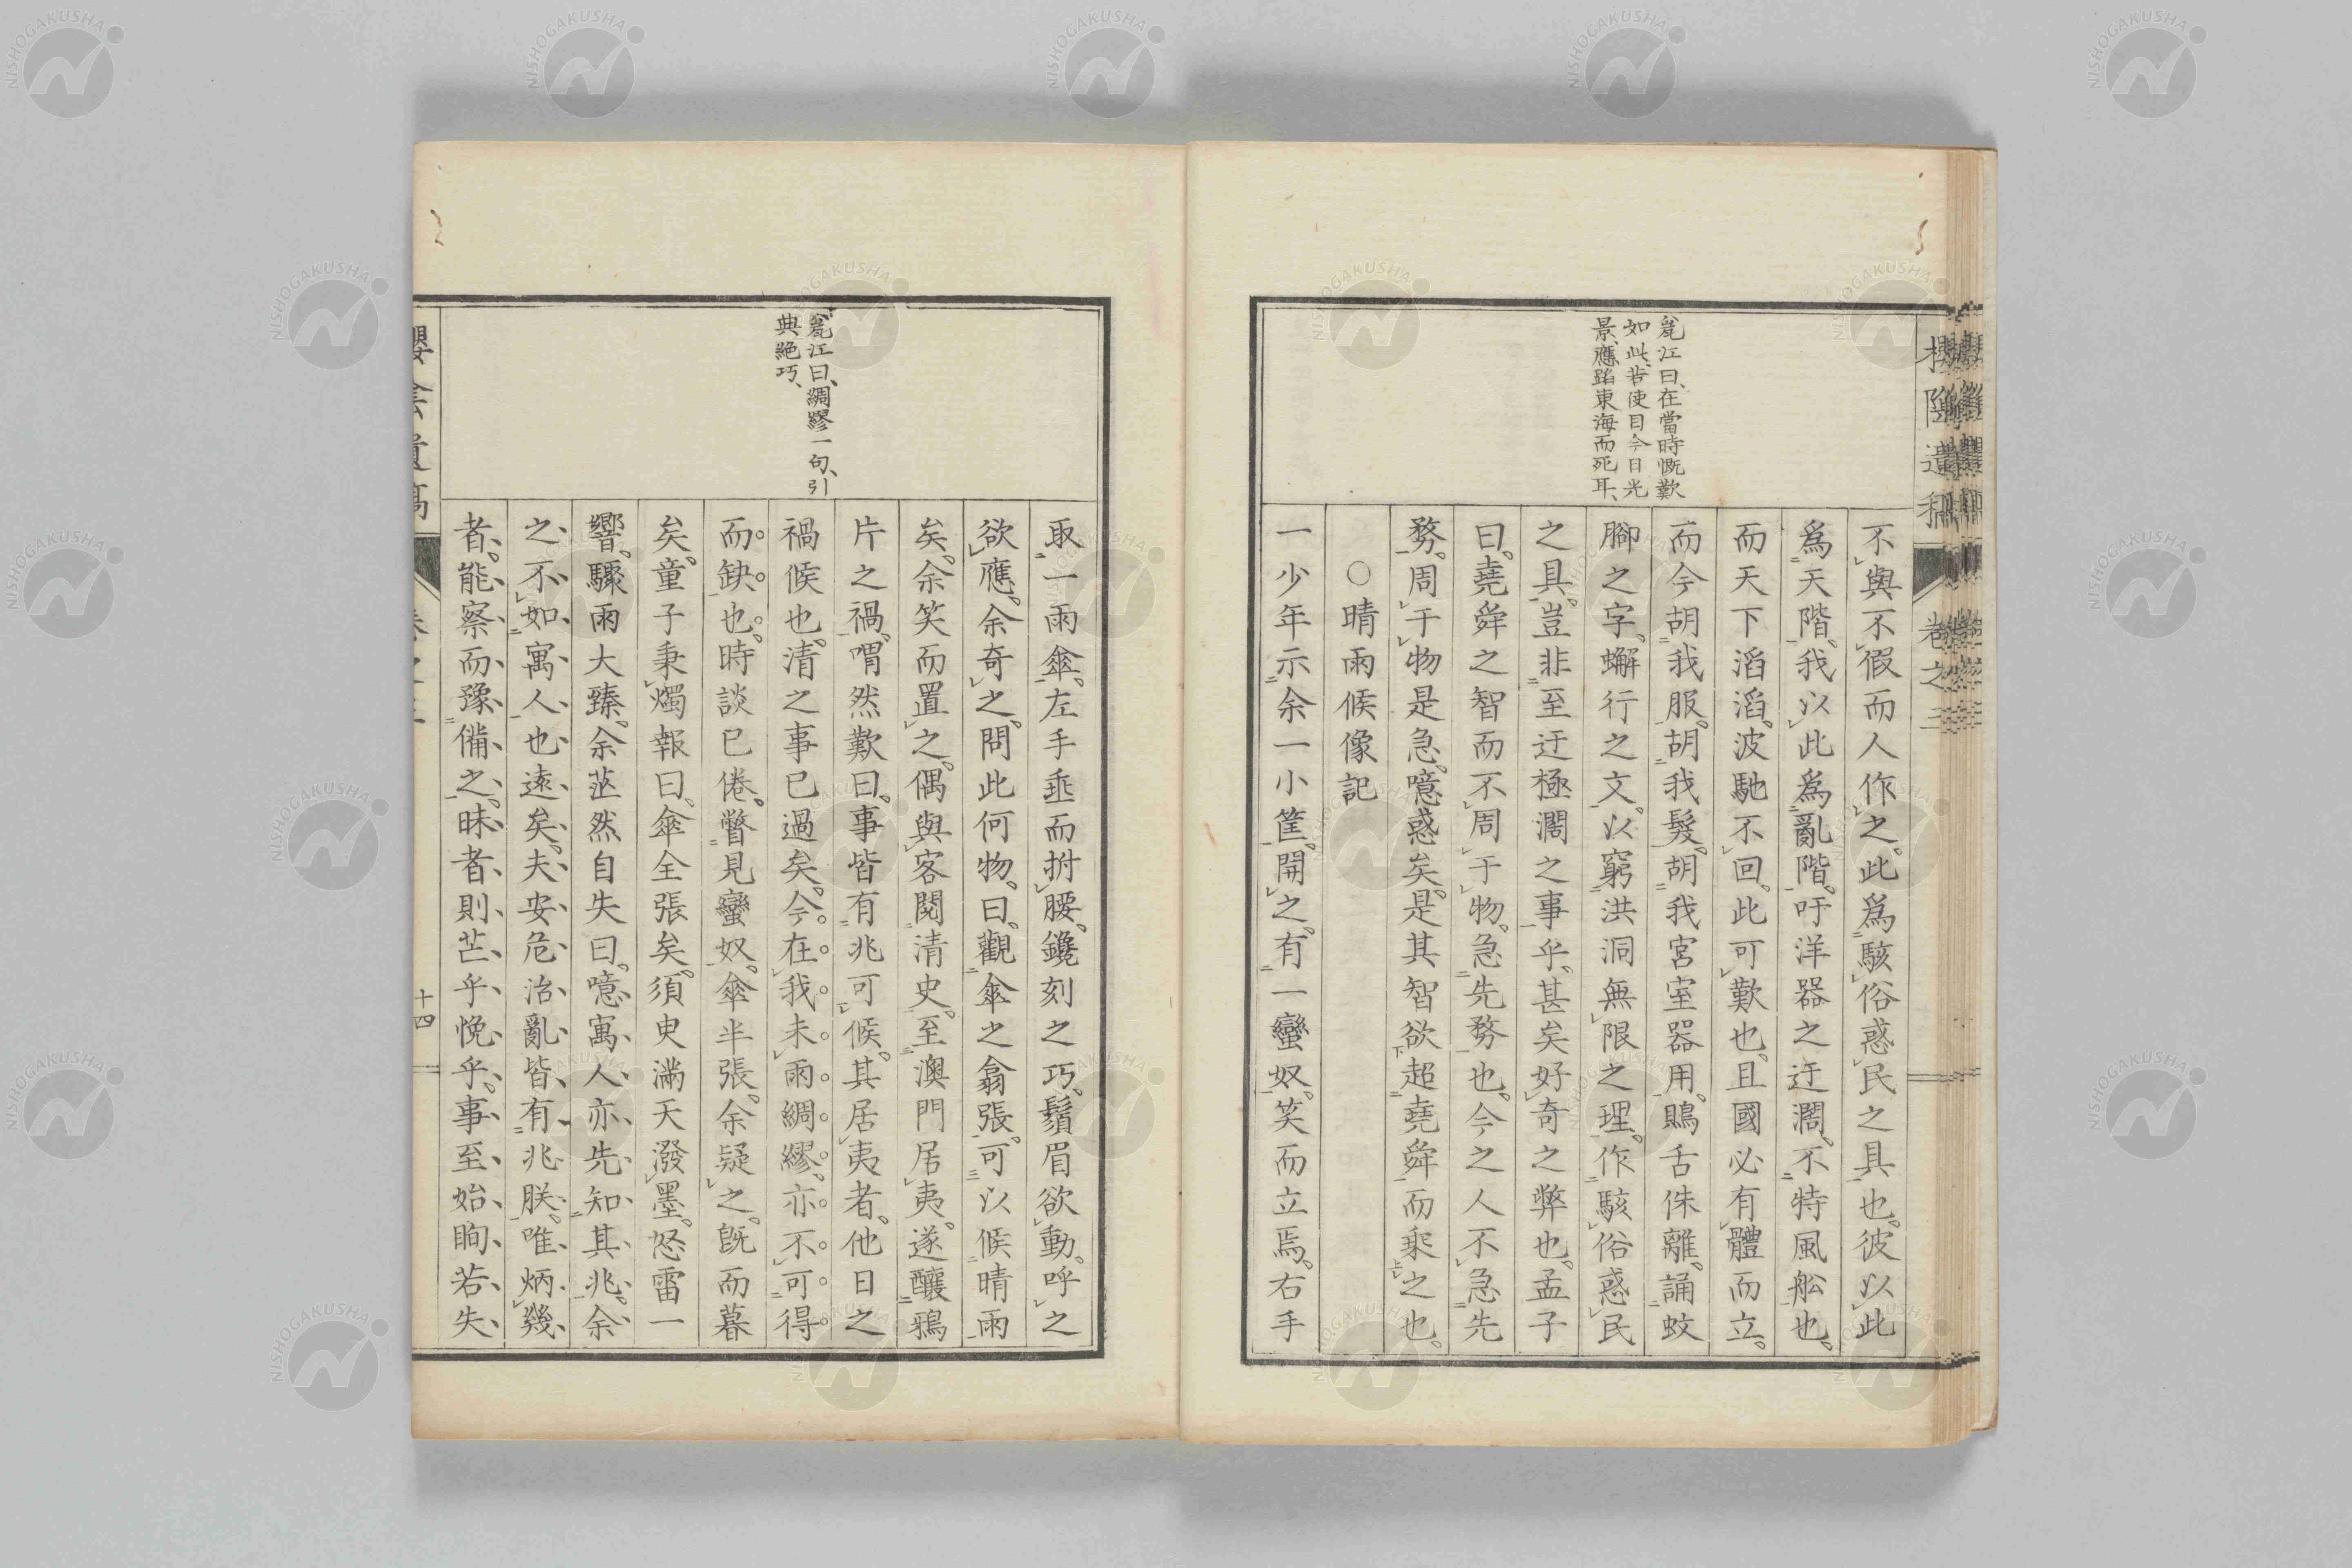 櫻陰遺稿 卷之三
甕江曰、在當時慨歎
如此、若使目今日光
景、應蹈東海而死耳、
不與不假而人作之。此爲駭俗惑民之具也。彼以此
爲天階。我以此爲亂階。吁洋器之迂濶。不特風舩也。
而天下滔滔。波馳不回。此可歎也。且國必有體而立。
而今胡我服。胡我髮。胡我宮室器用。鴃舌侏離。誦蚊
腳之字。蠏行之文。以窮洪洞無限之理。作駭俗惑民
之具。豈非至迂極濶之事乎。甚矣好奇之弊也。孟子
曰。堯舜之智而不周于物。急先務也。今之人不急先
務。周于物是急。噫惑矣。是其智欲超堯舜而乘之也。
○晴雨候像記
一少年示余一小筐。開之。有一蠻奴。笑而立焉。右手
甕江曰、綢繆一句、引
典絶巧、
取一雨傘。左手垂而拊腰。鑱刻之巧。鬚眉欲動。呼之
欲應。余奇之。問此何物。曰。觀傘之翕張。可以候晴雨
矣。余笑而置之。偶與客閱清史。至澳門居夷。遂釀鴉
片之禍。喟然歎曰。事皆有兆可候。其居夷者。他日之
禍候也。清之事已過矣。今在我未雨綢繆。亦不可得
而缺也。時談已倦。瞥見蠻奴。傘半張。余疑之。既而暮
矣。童子秉燭報曰。傘全張矣。須臾滿天潑墨。怒雷一
響。驟雨大臻。余茫然自失曰。噫寓人亦先知其兆。余
之不如寓人也遠矣。夫安危治亂皆有兆朕。唯炳幾
者。能察而豫備之。昧者則芒乎悗乎。事至始眴若失
櫻陰遺稿 卷之三 十四